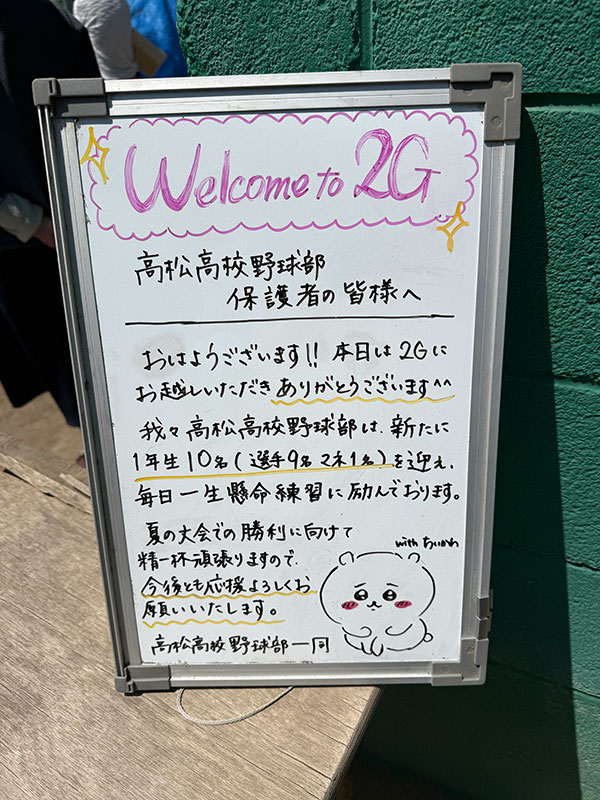 Welcome to 2G
高松高校野球部
保護者の皆様へ
おはようございます!! 本日は2Gに
お越しいただきありがとうございます^^
我々高松高校野球部は、新たに
1年生10名(選手9名 マネ1名)を迎え、
毎日一生懸命練習に励んでおります。
夏の大会での勝利に向けて
精一杯頑張りますので、
今後とも応援よろしくお
願いいたします。
with ちいかわ
高松高校野球部一同